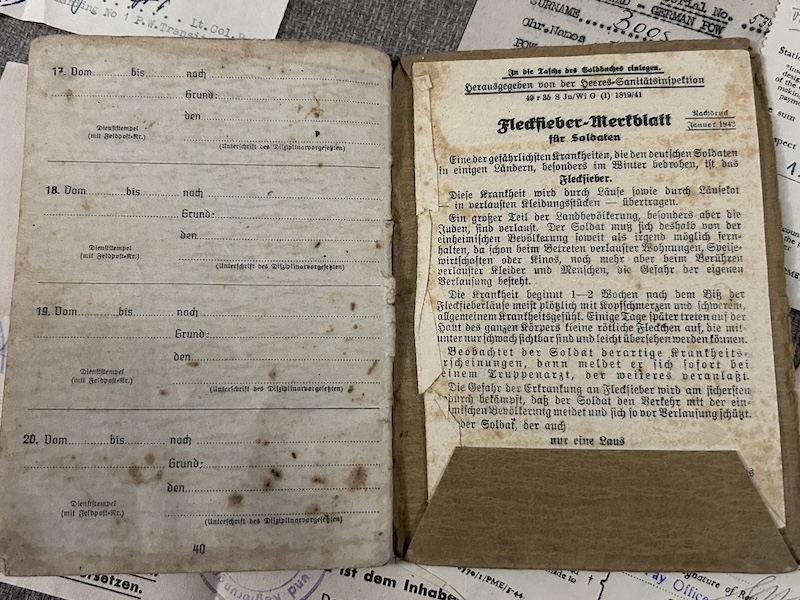 Lt. Col. R.
No 1 P.W. Transi
SURNAME
- GERMAN POW
Chr. Names
17. Vom bis nach
Grund:
den
Dienststempel
(mit Feldpost-Nr.)
(Unterschrift des Disziplinarvorgesetzten)
18. Vom bis nach
Grund:
den
Dienststempel
(mit Feldpost-Nr.)
(Unterschrift des Disziplinarvorgesetzten)
19. Vom bis nach
Grund:
den
Dienststempel
(mit Feldpost-Nr.)
(Unterschrift des Disziplinarvorgesetzten)
20. Vom bis nach
Grund:
den
Dienststempel
(mit Feldpost-Nr.)
(Unterschrift des Disziplinarvorgesetzten)
40
In die Tasche des Soldbuches einlegen.
Herausgegeben von der Heeres-Sanitätsinspektion
49 r 35 S Jn/Wi G (I) 1819/41
Nachdruck
Januar 1942
Fleckfieber-Merkblatt
für Soldaten
Eine der gefährlichsten Krankheiten, die den deutschen Soldaten
in einigen Ländern, besonders im Winter bedrohen, ist das
Fleckfieber.
Diese Krankheit wird durch Läuse sowie durch Läusekot
— in verlausten Kleidungsstücken — übertragen.
Ein großer Teil der Landbevölkerung, besonders aber die
Juden, sind verlaust. Der Soldat muß sich deshalb von der
einheimischen Bevölkerung soweit als irgend möglich fern-
halten, da schon beim Betreten verlauster Wohnungen, Speise-
wirtschaften oder Kinos, noch mehr aber beim Berühren
verlauster Kleider und Menschen, die Gefahr der eigenen
Verlausung besteht.
Die Krankheit beginnt 1—2 Wochen nach dem Biß der
Fleckfieberläuse meist plötzlich mit Kopfschmerzen und schwerem,
allgemeinem Krankheitsgefühl. Einige Tage später treten auf der
Haut des ganzen Körpers kleine rötliche Fleckchen auf, die mit-
unter nur schwach sichtbar sind und leicht übersehen werden können.
Beobachtet der Soldat derartige Krankheits-
erscheinungen, dann meldet er sich sofort bei
einem Truppenarzt, der weiteres veranlaßt.
Die Gefahr der Erkrankung an Fleckfieber wird am sichersten
durch bekämpft, daß der Soldat den Verkehr mit der ein-
imischen Bevölkerung meidet und sich so vor Verlausung schützt.
der Soldat, der auch
nur eine Laus
ersetzen.
ist dem Inhaber
ay Office
gnature of